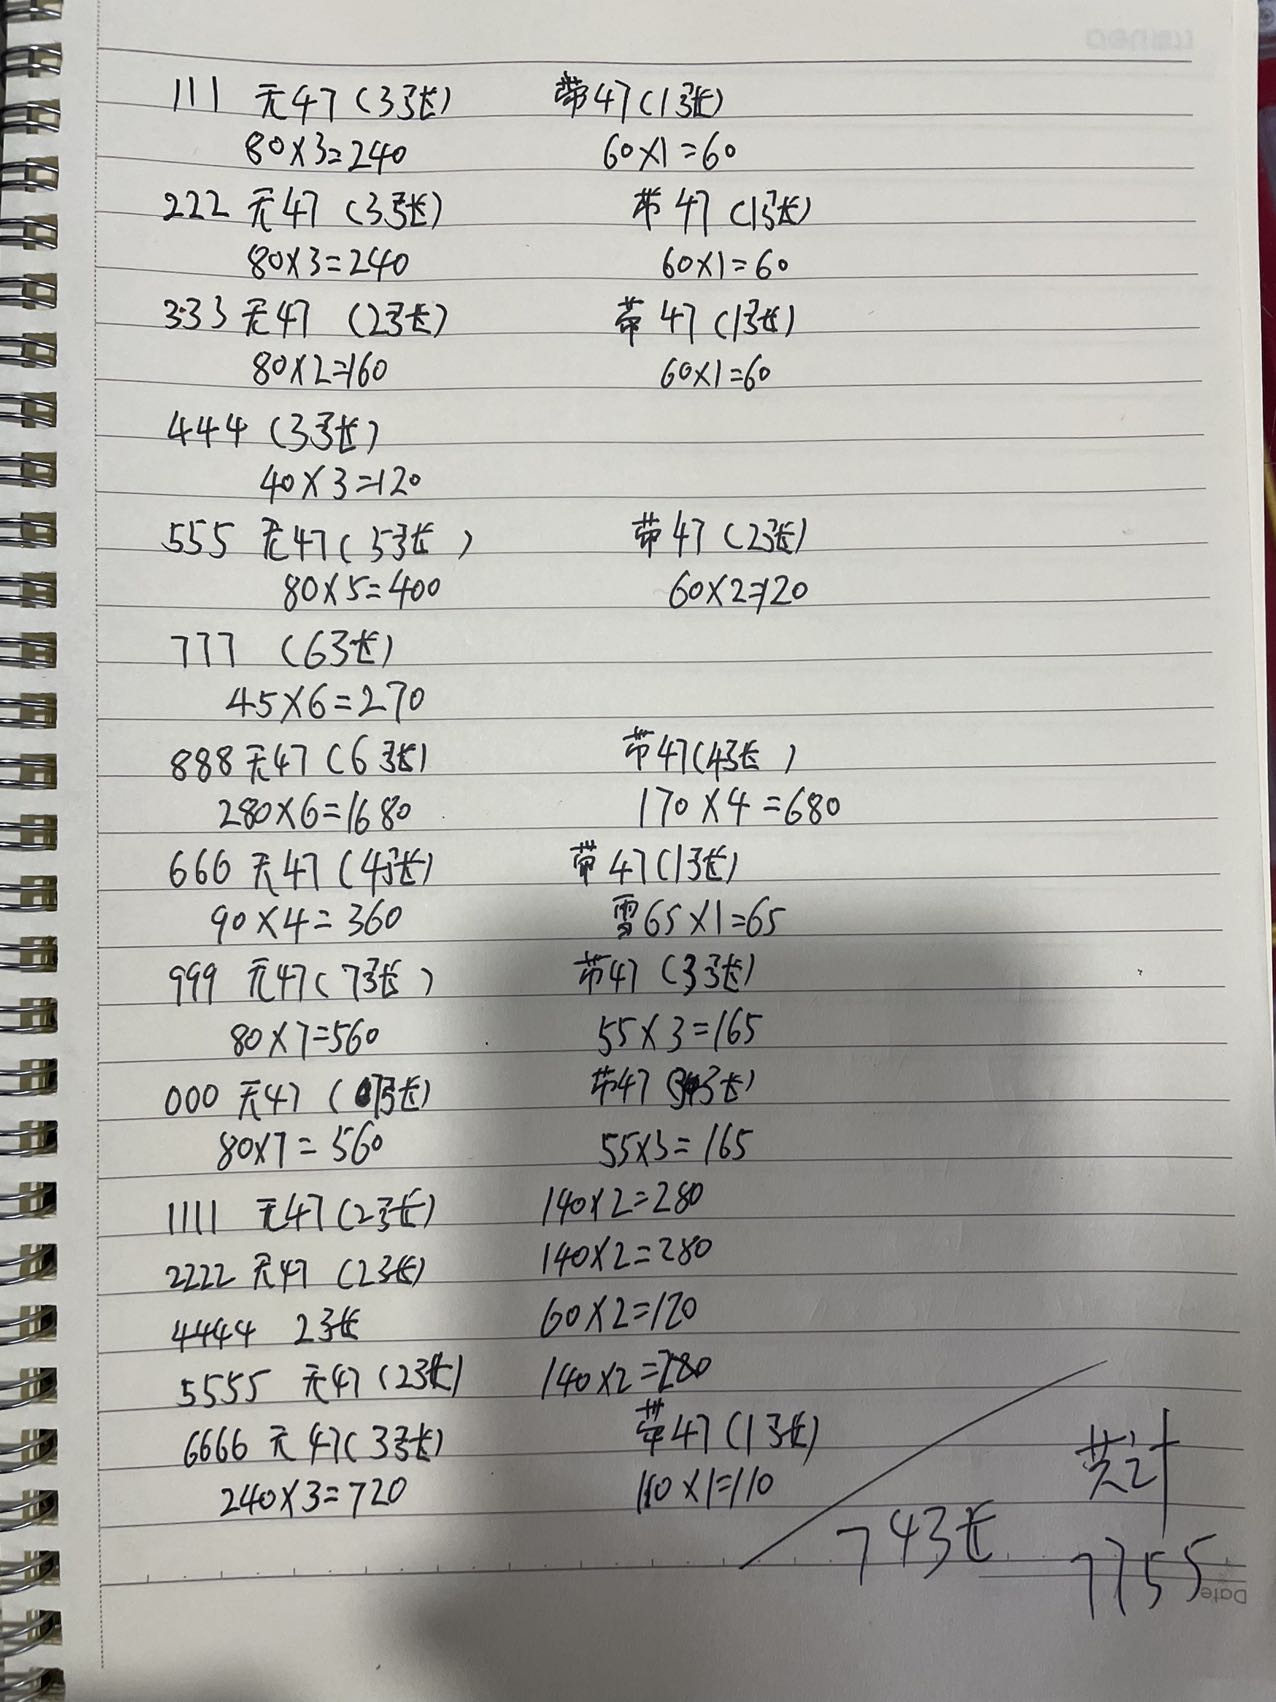 111 无47(3张) 带47(1张)
80×3=240 60×1=60
222 无47(3张) 带47(1张)
80×3=240 60×1=60
333 无47(2张) 带47(1张)
80×2=160 60×1=60
444(3张)
40×3=120
555 无47(5张) 带47(2张)
80×5=400 60×2=120
777 (6张)
45×6=270
888 无47(6张) 带47(4张)
280×6=1680 170×4=680
666 无47(4张) 带47(1张)
90×4=360 65×1=65
999 无47(7张) 带47(3张)
80×7=560 55×3=165
000 无47(7张) 带47(3张)
80×7=560 55×3=165
1111 无47(2张) 140×2=280
2222 无47(2张) 140×2=280
4444 2张 60×2=120
5555 无47(2张) 140×2=280
6666 无47(3张) 带47(1张)
240×3=720 110×1=110
共计
74张 7755
Date